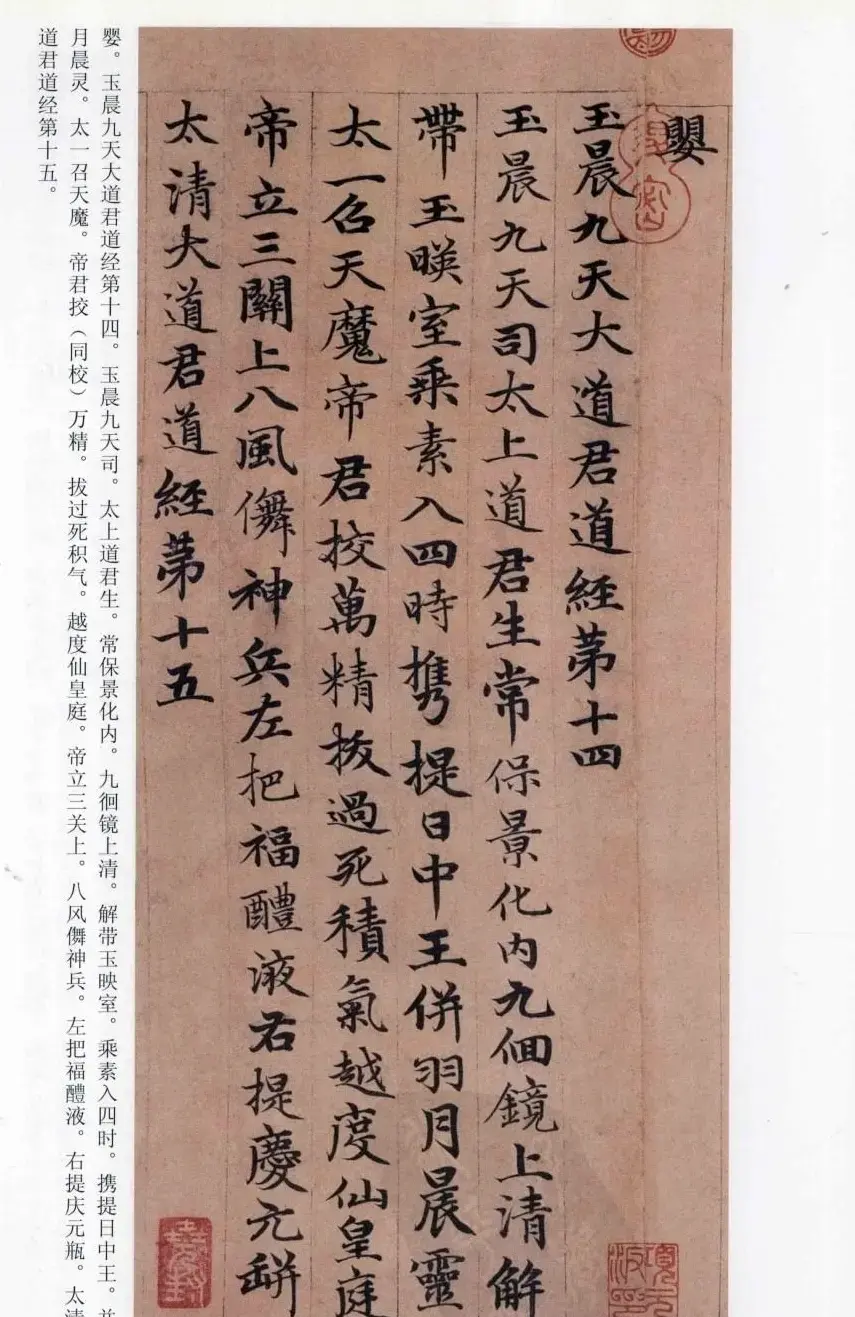 嬰
玉晨九天大道君道經苐十四
玉晨九天司太上道君生常保景化内九佪鏡上清解
帶玉暎室乗素入四時携提日中王併羽月晨靈
太一召天魔帝君挍萬精拔過死積氣越度仙皇庭
帝立三關上八風儛神兵左把福醴液右提慶元缾
太清大道君道經苐十五
婴。玉晨九天大道君道经第十四。玉晨九天司。太上道君生。常保景化内。九徊镜上清。解带玉映室。乘素入四时。携提日中王。并
月晨灵。太一召天魔。帝君挍（同校）万精。拔过死积气。越度仙皇庭。帝立三关上。八风儛神兵。左把福醴液。右提庆元瓶。太清
道君道经第十五。